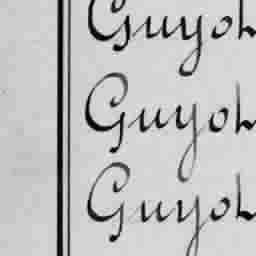 Guyot
Guyot
Guyot